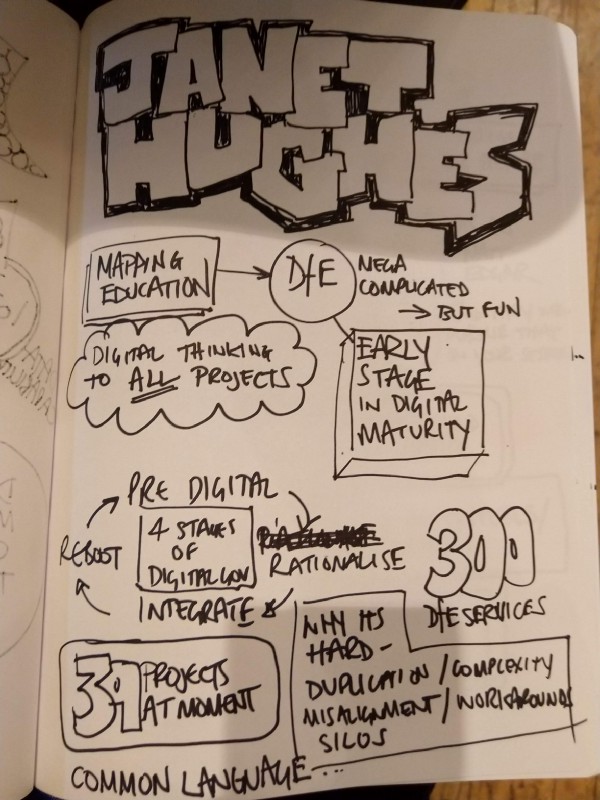 JANET
HUGHES
MAPPING
EDUCATION
DfE
MEGA
COMPLICATED
→ BUT FUN
DIGITAL THINKING
TO ALL PROJECTS
EARLY
STAGE
IN DIGITAL
MATURITY
PRE DIGITAL
4 STAGES
OF
DIGITAL GOV
RATIONALISE
INTEGRATE
REBOOT
300
DfE SERVICES
39 PROJECTS
AT MOMENT
WHY ITS
HARD -
DUPLICATION / COMPLEXITY
MISALIGNMENT / WORKAROUNDS
SILOS
COMMON LANGUAGE...